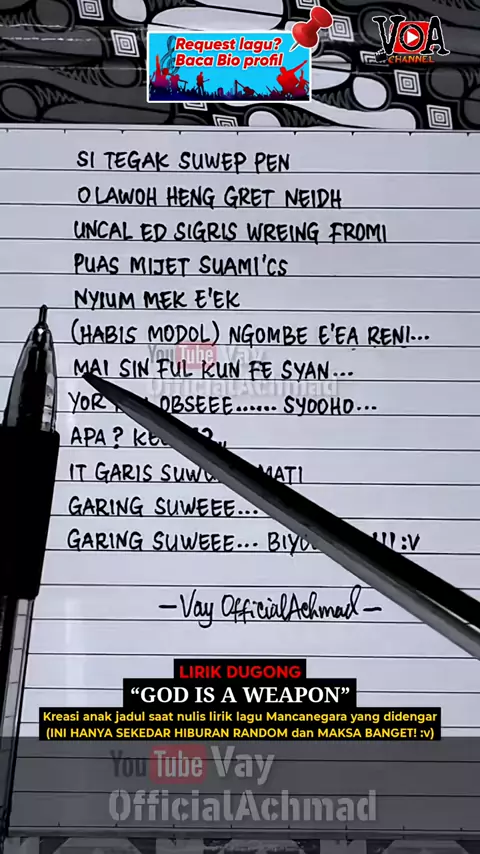 Request lagu?
Baca Bio profil
VOA
CHANNEL
SI TEGAK SUWEP PEN
OLAWOH HENG GRET NEIDH
UNCAL ED SIGRIS WREING FROMI
PUAS MIJET SUAMI'CS
NYIUM MEK E'EK
(HABIS MODOL) NGOMBE E'EA RENI...
MAI SIN FUL KUN FE SYAN...
YOR OBSEEE...... SYOOHO...
APA?
IT GARIS
GARING SUWEEE...
GARING SUWEEE... :v
-Vay OfficialAchmad-
LIRIK DUGONG
“GOD IS A WEAPON”
Kreasi anak jadul saat nulis lirik lagu Mancanegara yang didengar
(INI HANYA SEKEDAR HIBURAN RANDOM dan MAKSA BANGET! :v)
YouTube Vay
OfficialAchmad